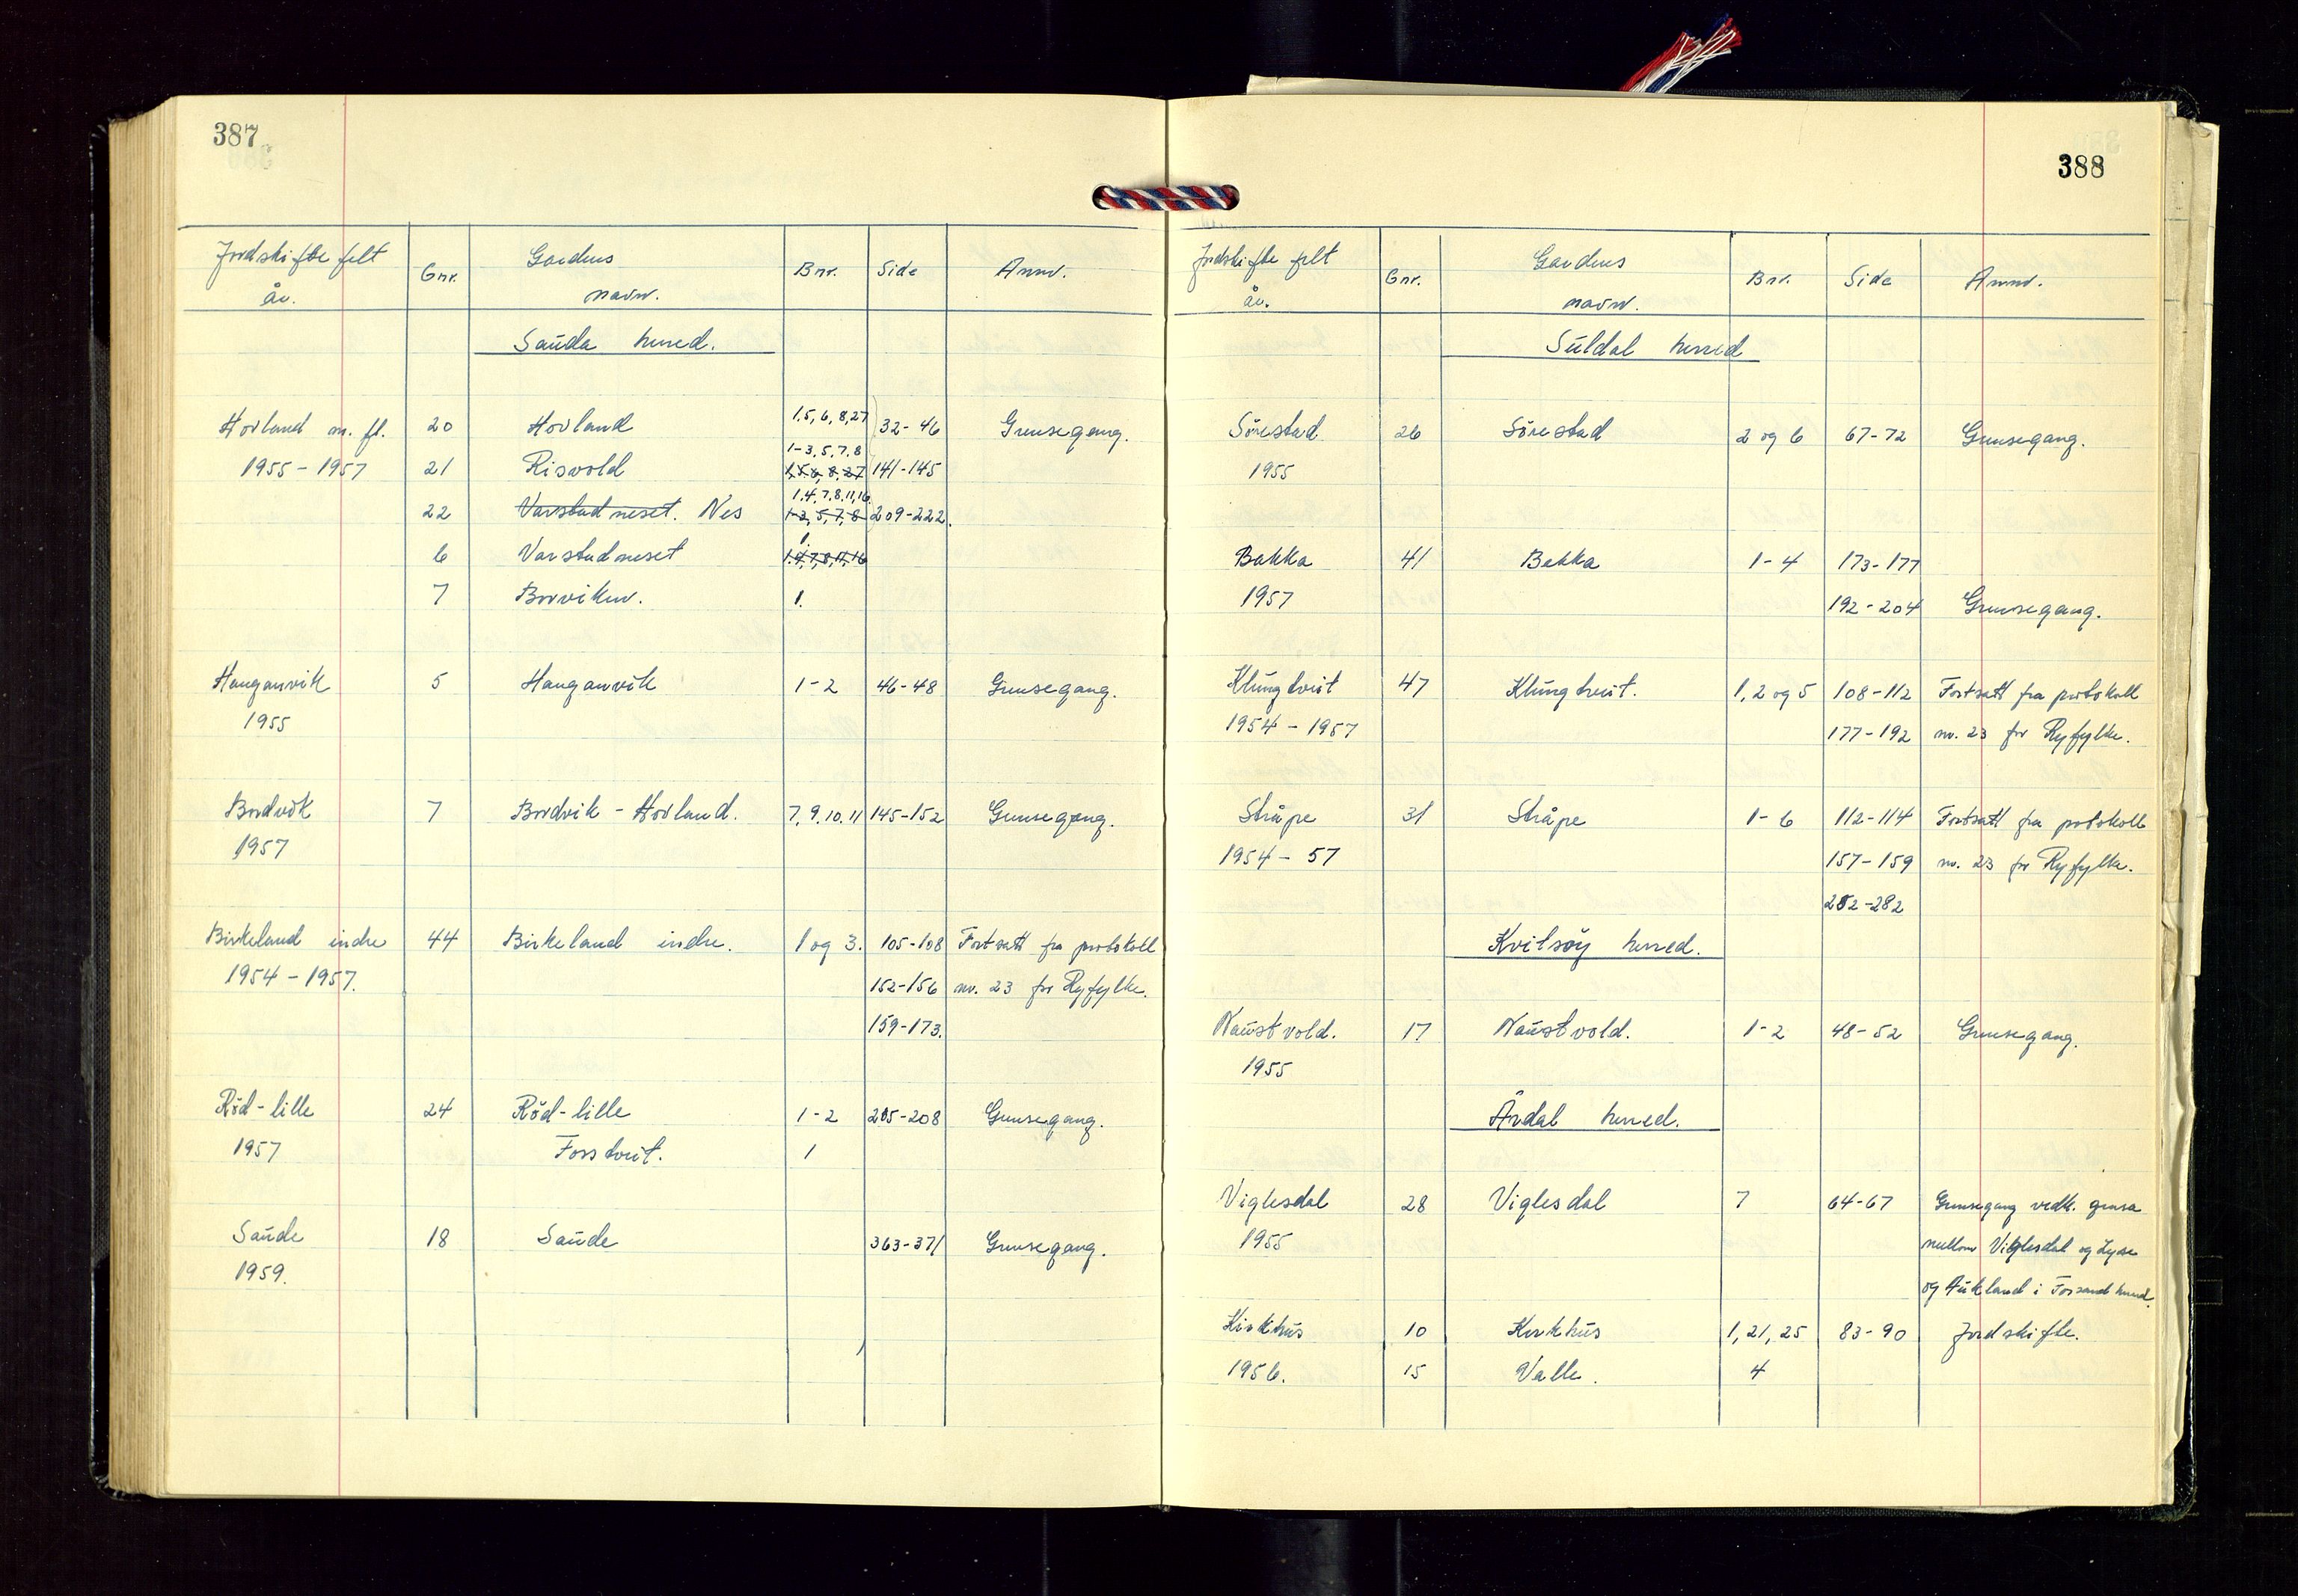 387
Jordskifte felt Gnr. Gardens Bnr. Side Anm.
år. navn.
Sauda herred.
Hovland m. fl. 20 Hovland 1.5, 6, 8, 27 32-46 Grensegang.
1-3, 5, 7, 8
1955-1957 21 Risvold 1,5,6, 8, 27 141-145
1.4, 7, 8, 11, 16
22 Varstadneset. Nes 1-3, 5, 7, 8 209-222.
1.
6 Varstadneset 1.4, 7, 8, 11, 16
7 Borviken. 1.
Hauganvik 5 Hauganvik 1-2 46-48 Grensegang.
1955
Bordvik 7 Bordvik - Hovland. 7, 9, 10, 11 145-152 Grensegang.
1957
Birkeland indre 44 Birkeland indre. 1 og 3. 105-108 Fortsatt fra protokoll
1954-1957. 152-156 nr. 23 for Ryfylke.
159-173.
Röd-lille 24 Röd-lille 1-2 205-208 Grensegang.
1957 Fosstveit. 1
Saude 18 Saude 363-371 Grensegang.
1959.
388
Jordskifte felt Gnr. Gardens Bnr. Side Anm.
år. navn.
Suldal herred
Sörestad 26 Sörestad 2 og 6 67-72 Grensegang.
1955
Bakka 41 Bakka 1-4 173-177
1957 192-204 Grensegang.
Klungtveit 47 Klungtveit. 1, 2 og 5 108-112 Fortsatt fra protokoll
1954-1957 177-192 nr. 23 for Ryfylke.
Stråpe 31 Stråpe 1-6 112-114 Fortsatt fra protokoll
1954-57 157-159 nr. 23 for Ryfylke.
282-282
Kvitsöy herred.
Naustvold. 17 Naustvold. 1-2 48-52 Grensegang.
1955
Årdal herred.
Viglesdal 28 Viglesdal 7 64-67 Grensegang vedk. grensa
1955 mellom Viglesdal og Lyse
og Aukland i Forsand herred.
Kirkhus 10 Kirkhus 1, 21, 25 83-90 Jordskifte.
1956. 15 Valle. 4